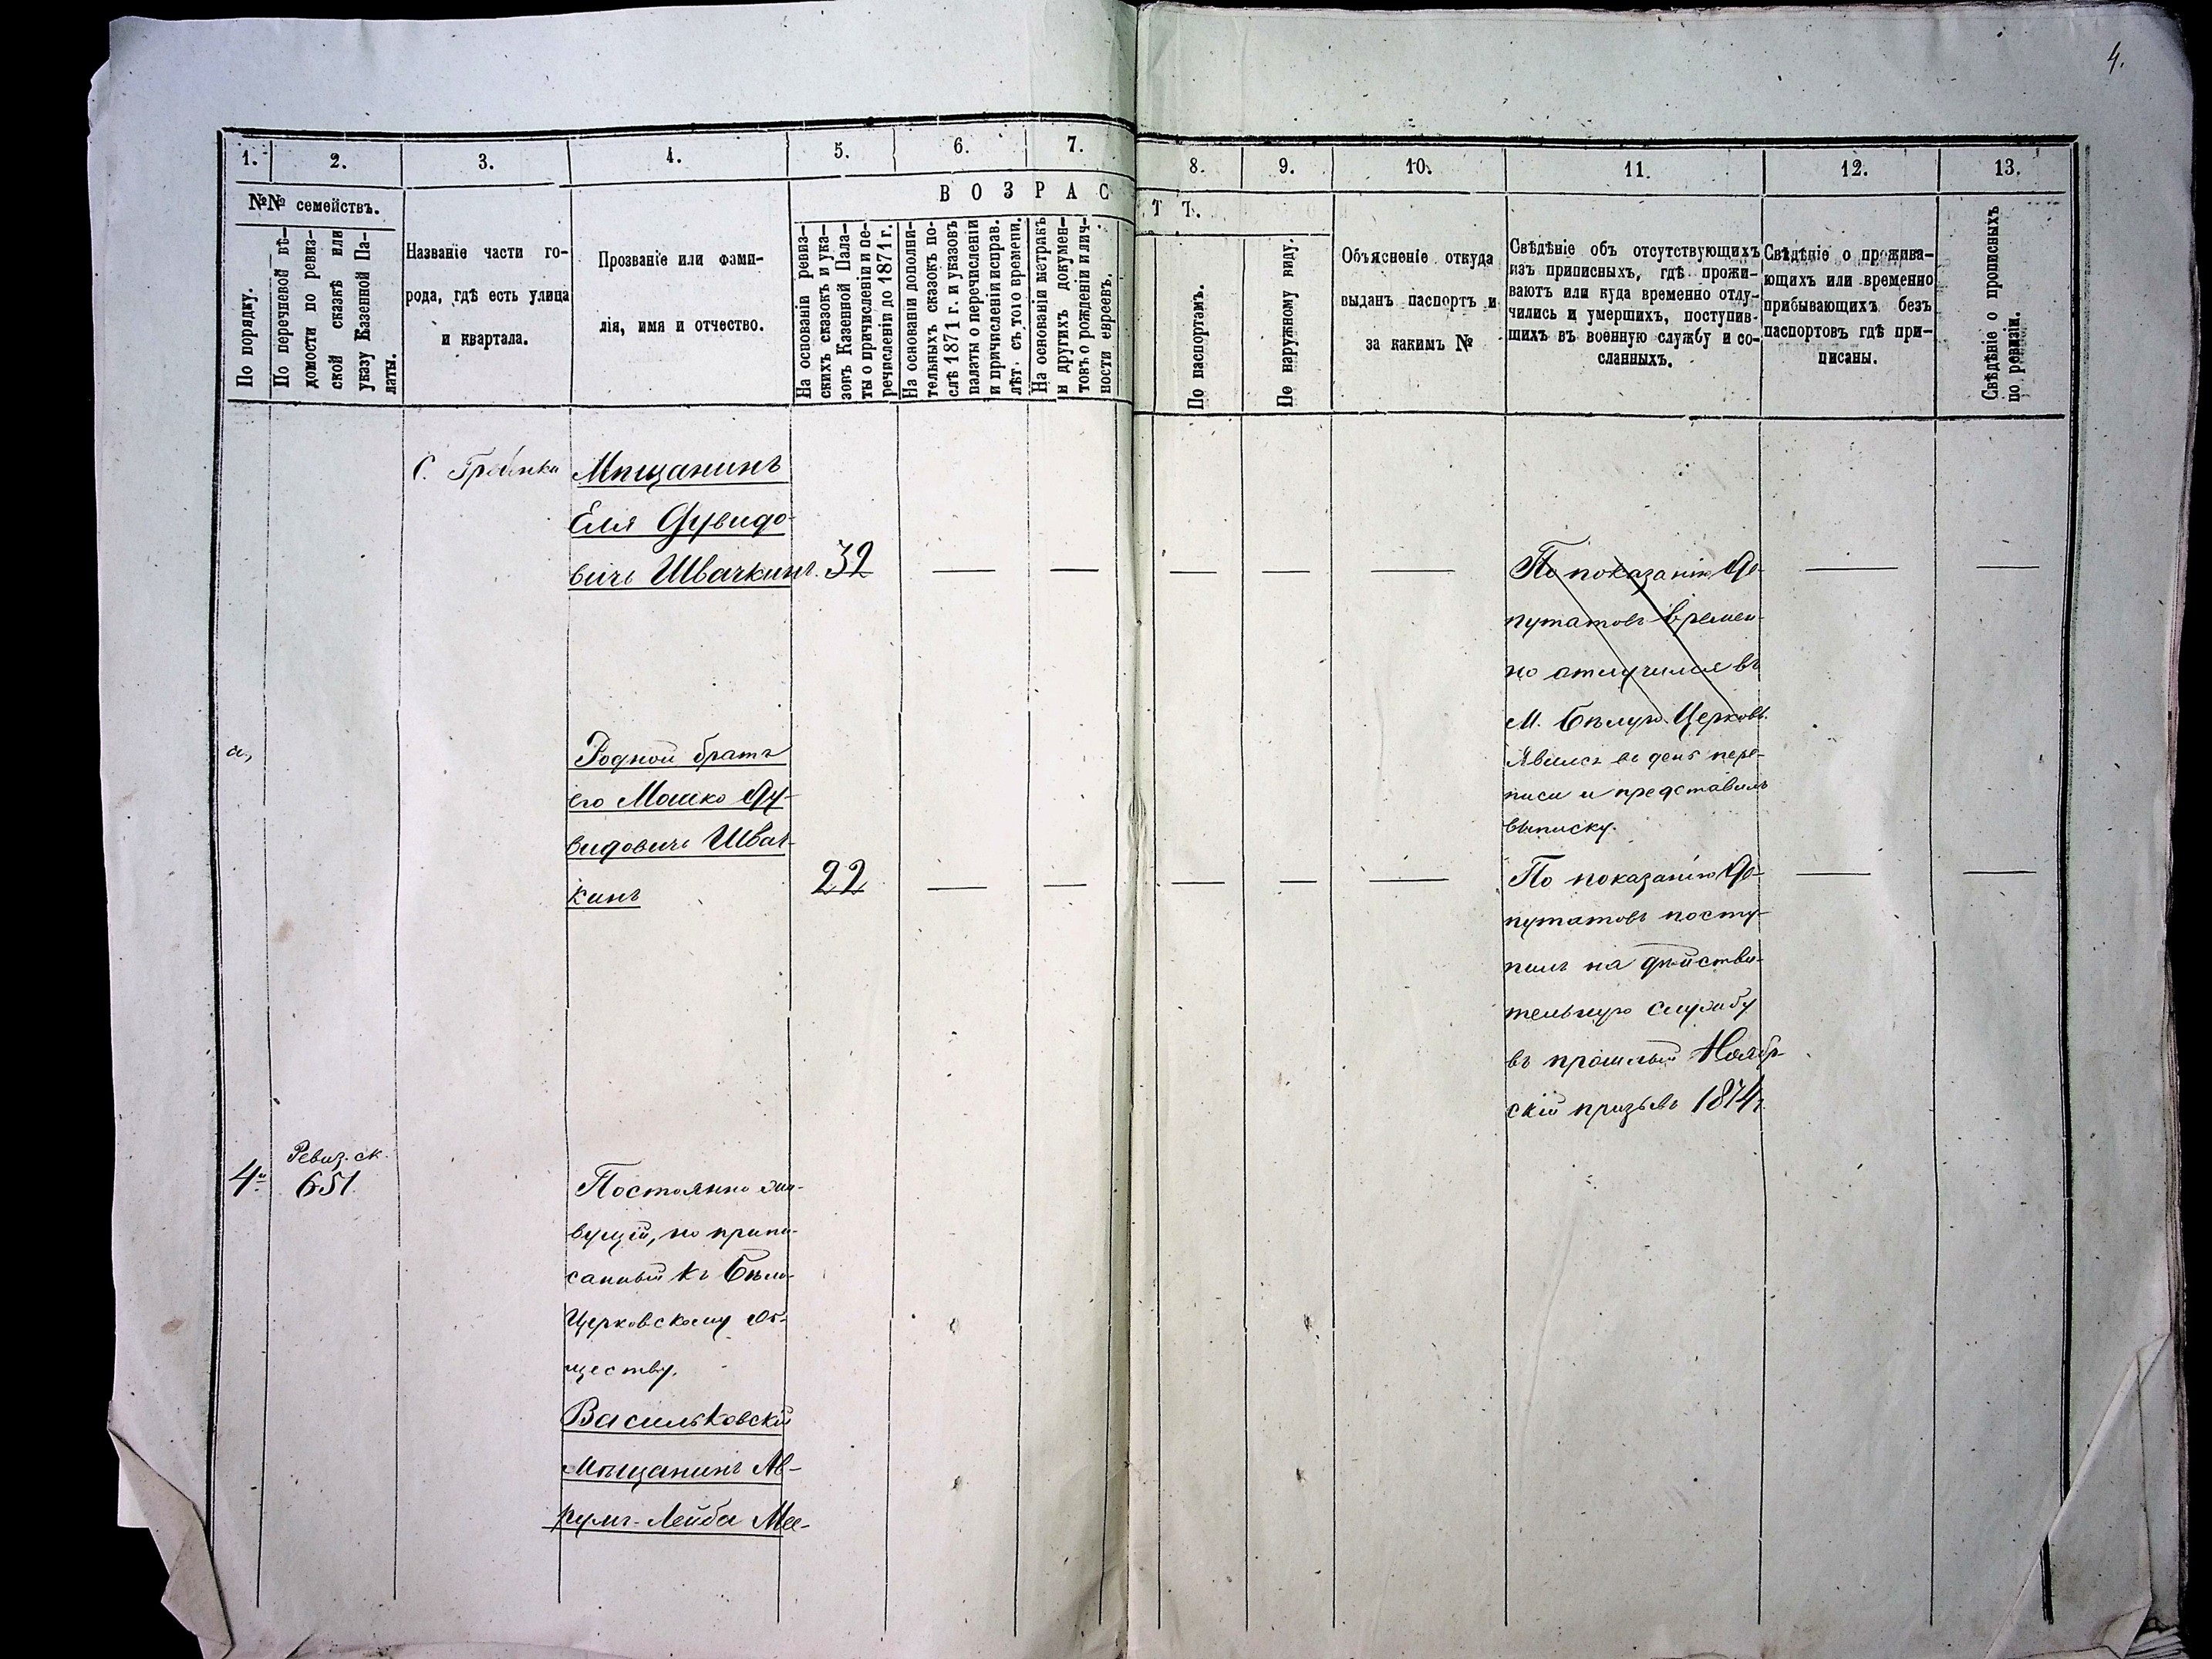 4.
1.
2.
3.
4.
5.
6.
7.
8.
9.
10.
11.
12.
13.
№№ семействъ.
ВОЗРАС
ТЪ.
По порядку.
По перечневой вѣ-
домости по ревиз-
ской сказкѣ или
указу Казенной Па-
латы.
Названіе части го-
рода, гдѣ есть улица
и квартала.
Прозваніе или фами-
лія, имя и отчество.
На основаніи ревиз-
скихъ сказокъ и ука-
зовъ Казенной Пала-
ты о причисленіи и пе-
речисленіи до 1871 г.
На основаніи дополни-
тельныхъ сказокъ по-
слѣ 1871 г. и указовъ
палаты о перечисленіи
и причисленіи исправ.
лѣт. съ того времени.
На основаніи метрикъ
и другихъ докумен-
товъ о рожденіи и лич-
ности евреевъ.
По паспортамъ.
По наружному виду.
Объясненіе откуда
выданъ паспортъ и
за какимъ №
Свѣдѣніе объ отсутствующихъ
изъ приписныхъ, гдѣ прожи-
ваютъ или куда временно отлу-
чились и умершихъ, поступив-
шихъ въ военную службу и со-
сланныхъ.
Свѣдѣніе о прожива-
ющихъ или временно
прибывающихъ безъ
паспортовъ гдѣ при-
писаны.
Свѣдѣніе о прописныхъ
по ревизіи.
С. Гребинки
Мѣщанинъ
Еля Дувидо-
вичъ Швачкинъ. 32
По показанію де-
путатовъ времен-
но отлучился въ
М. Бѣлую Церковь.
Явился въ день пере-
писи и представилъ
выписку.
а,
Родной братъ
его Мошко Ду-
видовичъ Швач-
кинъ
22
По показанію де-
путатовъ посту-
пилъ на дѣйстви-
тельную службу
въ прошлый Ноябр-
скій призывъ 1874 г.
4й
Ревиз. ск.
651.
Постоянно жи-
вущій, но припи-
санный къ Бѣло-
Церковскому об-
ществу.
Васильковскій
Мѣщанинъ Ав-
румъ-Лейба Ме-